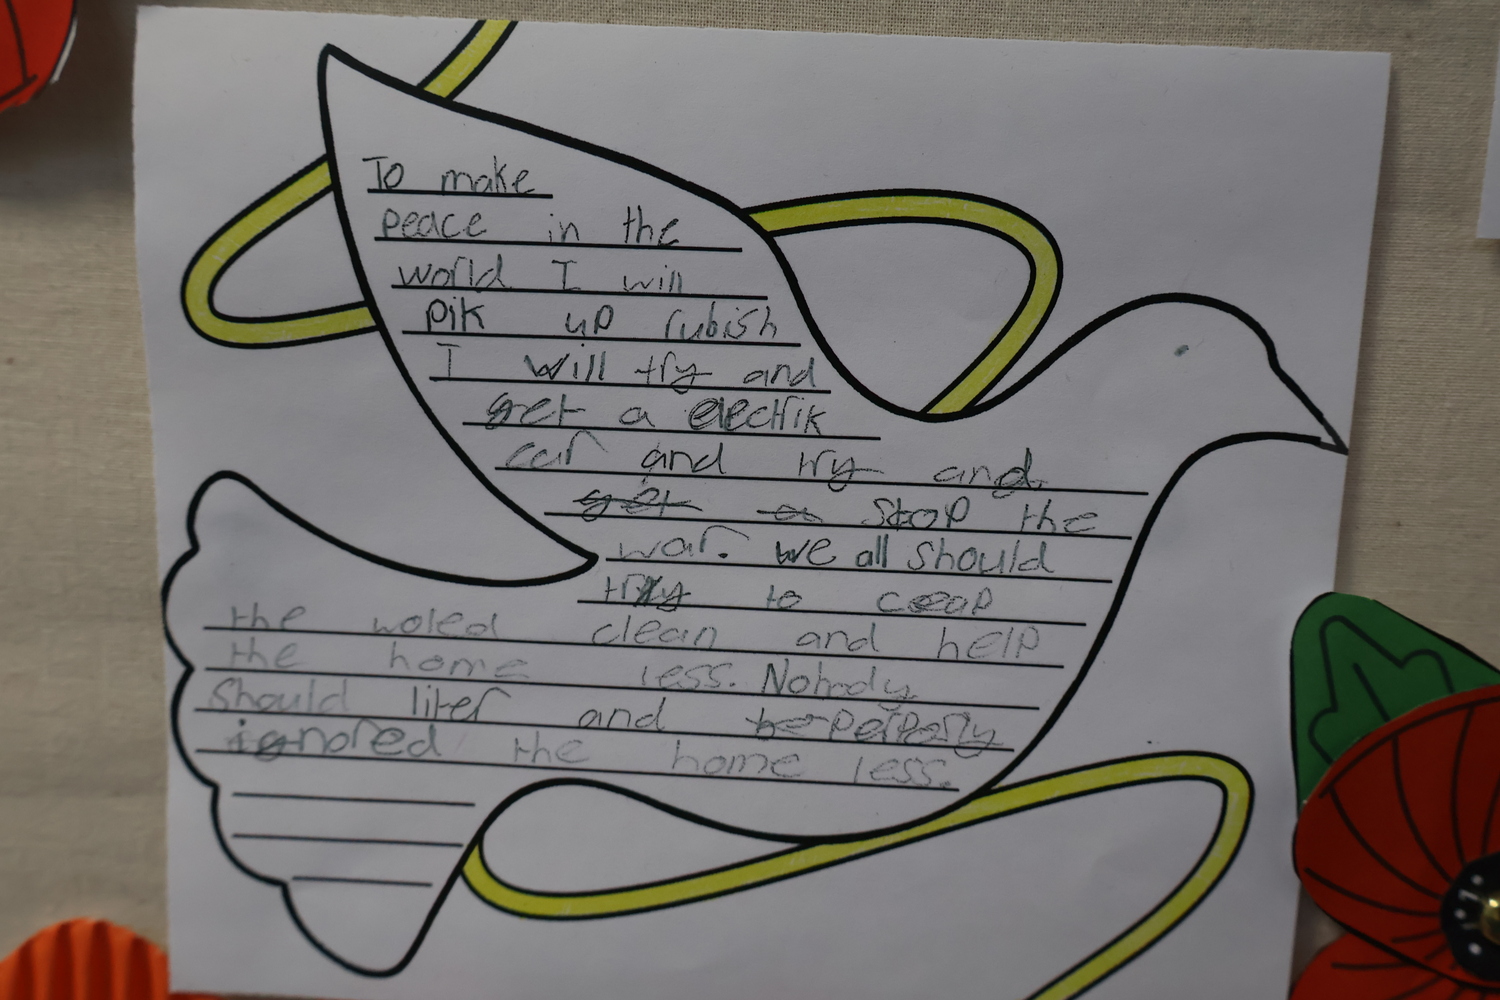 To make
peace in the
world I will
pik up rubish
I will try and
get a electrik
car and try and
get a stop the
war. we all should
try to ceap
the woled clean and help
the home less. Nobody
Should liter and be perposly
ignored the home less.